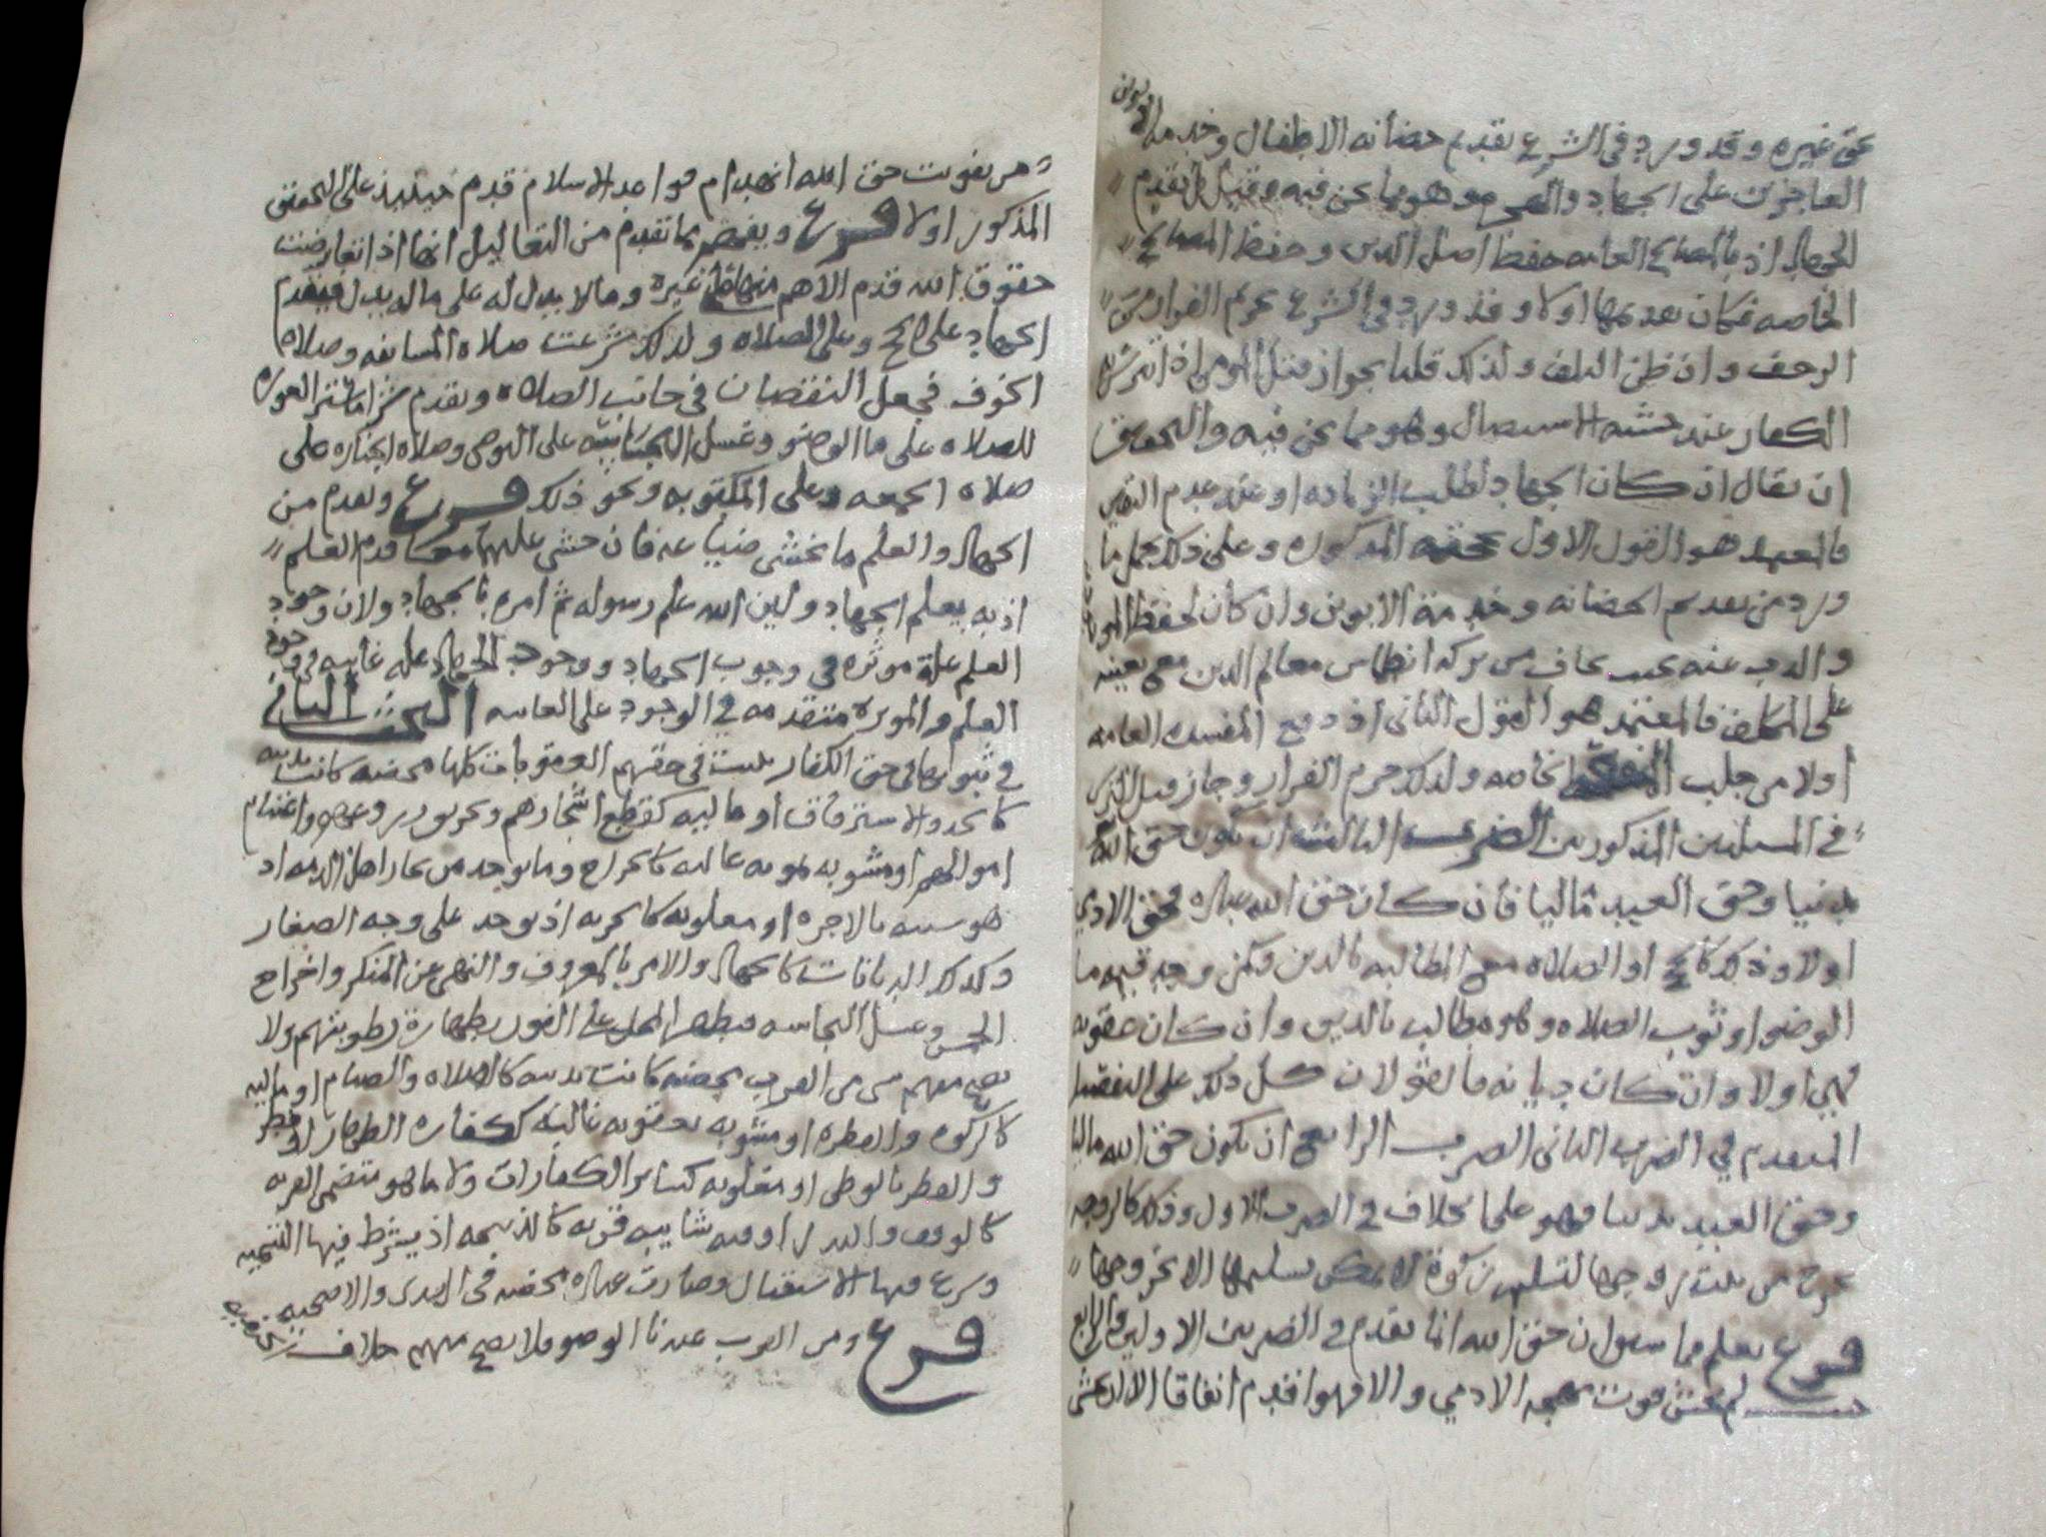 حق غيره وقد ورد في الشرع تقديم حضانه الاطفال وخدمه الابوين
العاجزين على الجهاد والهجره وهو مما نحن فيه وقيل بل تقدم
الجهاد اذ بالمصالح العامه حفظ اصل الدين وحفظ المصالح
الخاصه فكان تقديمها اولا وقد ورد في الشرع تحريم الفرار من
الزحف وان ظن التلف ولذلك قلنا بجواز قتل المومن اذا تترس به
الكفار عند خشيه الاستيصال وهو مما نحن فيه والتحقيق
ان يقال ان كان الجهاد لطلب الزياده او عند عدم التعيين
فالمعتمد هو القول الاول المذكوره وعلى ذلك يحمل ما
ورد من تقديم الحضانه وخدمة الابوين وان كان لحفظ
والذب عنه بحيث يخاف من تركه انطماس معالم الدين مع تعينه
على المكلف فالمعتمد هو القول الثاني اذ دفع المفسده العامه
اولا من جلب الخاصه ولذلك حرم الفرار وجاز قتل الترس
في المسلتين المذكورتين الضرب الثالث ان يكون حق الله
بدنيا وحق العبد ماليا فان كان حق الله عباده فحق الادمي
اولا وذلك كالحج او الصلاه مع المطالبه بالدين ولكن وجد قيمه ما
الوضوا او ثوب الصلاه وهو مطالب بالدين وان كان عقوبه
فهي اولا وان كان ديانه فالقولان كل ذلك على التفصيل
المتقدم في الضرب الثاني الضرب الرابع ان يكون حق الله ماليا
وحق العبد بدنيا فهو على الخلاف في الضرب الاول وذلك كالزوجه
تخرج من بيت زوجها لتسليم زكوة لا يمكن تسليمها الا بخروجها
فرع يعلم مما سبق ان حق الله انما يقدم في الضربين الاولين والرابع
حيث لم يخش فوت مهجه الادمي والا فهو اقدم اتفاقا الا ان يخشى
من تفويت حق الله انهدام قواعد الاسلام قدم حينيذ على التحقيق
المذكور اولا فرع ويفهم مما تقدم من التعاليل انها اذا تعارضت
حقوق الله قدم الاهم منها على غيره وما لا بدل له على ما له بدل فيقدم
الجهاد على الحج وعلى الصلاه ولذلك شرعت صلاه المسايفه وصلاه
الخوف فجعل النقصان في جانب الصلاه ويقدم شرا ما يستر العوره
للصلاه على ما الوضو وغسل النجاسه على الوضو وصلاه الجنازه على
صلاه الجمعه وعلى المكتوبه ونحو ذلك فرع ويقدم من
الجهاد والعلم ما يخشى ضياعه فان خشي عليهما معا قدم العلم
اذ به يعلم الجهاد ولان الله علم رسوله ثم امره بالجهاد ولان وجود
العلم علة موثره في وجوب الجهاد ووجوب الجهاد عله غاييه في وجود
العلم والموثره متقدمه في الوجود على الغاييه البحث الثاني
في ثبوتها في حق الكفار يثبت في حقهم العقوبات كلها محضه كانت بدنيه
كالحد والاسترقاق او ماليه كقطع اشجارهم وتحريق واغتنام
اموالهم او مشوبه بمونه غاليه كالخراج وما يوخذ من تجار اهل الذمه اذ
هو شبيه بالاجره او مغلوبه كالجزيه اذ توخذ على وجه الصغار
وكذلك الديانات كالجهاد والامر بالمعروف والنهي عن المنكر واخراج
الخمس وغسل النجاسه فيطهر المحل على القول بطهارة رطوبتهم ولا
يصح منهم شي من القرب محضه كانت بدنيه كالصلاه والصيام او ماليه
كالزكوه والفطره او مشوبه بعقوبه غالبه ككفاره الظهار
والفطر بالوطي او مغلوبه كساير الكفارات ولا ما هو متضمن القربه
كالوقف والنذر او فيه شايبه قربه كالذبيحه اذ يشترط فيها التسميه
وشرع فيها الاستقبال وصارت عباده محضه في الهدي والاضحيه
فرع ومن القرب عندنا الوضو فلا يصح منهم خلاف